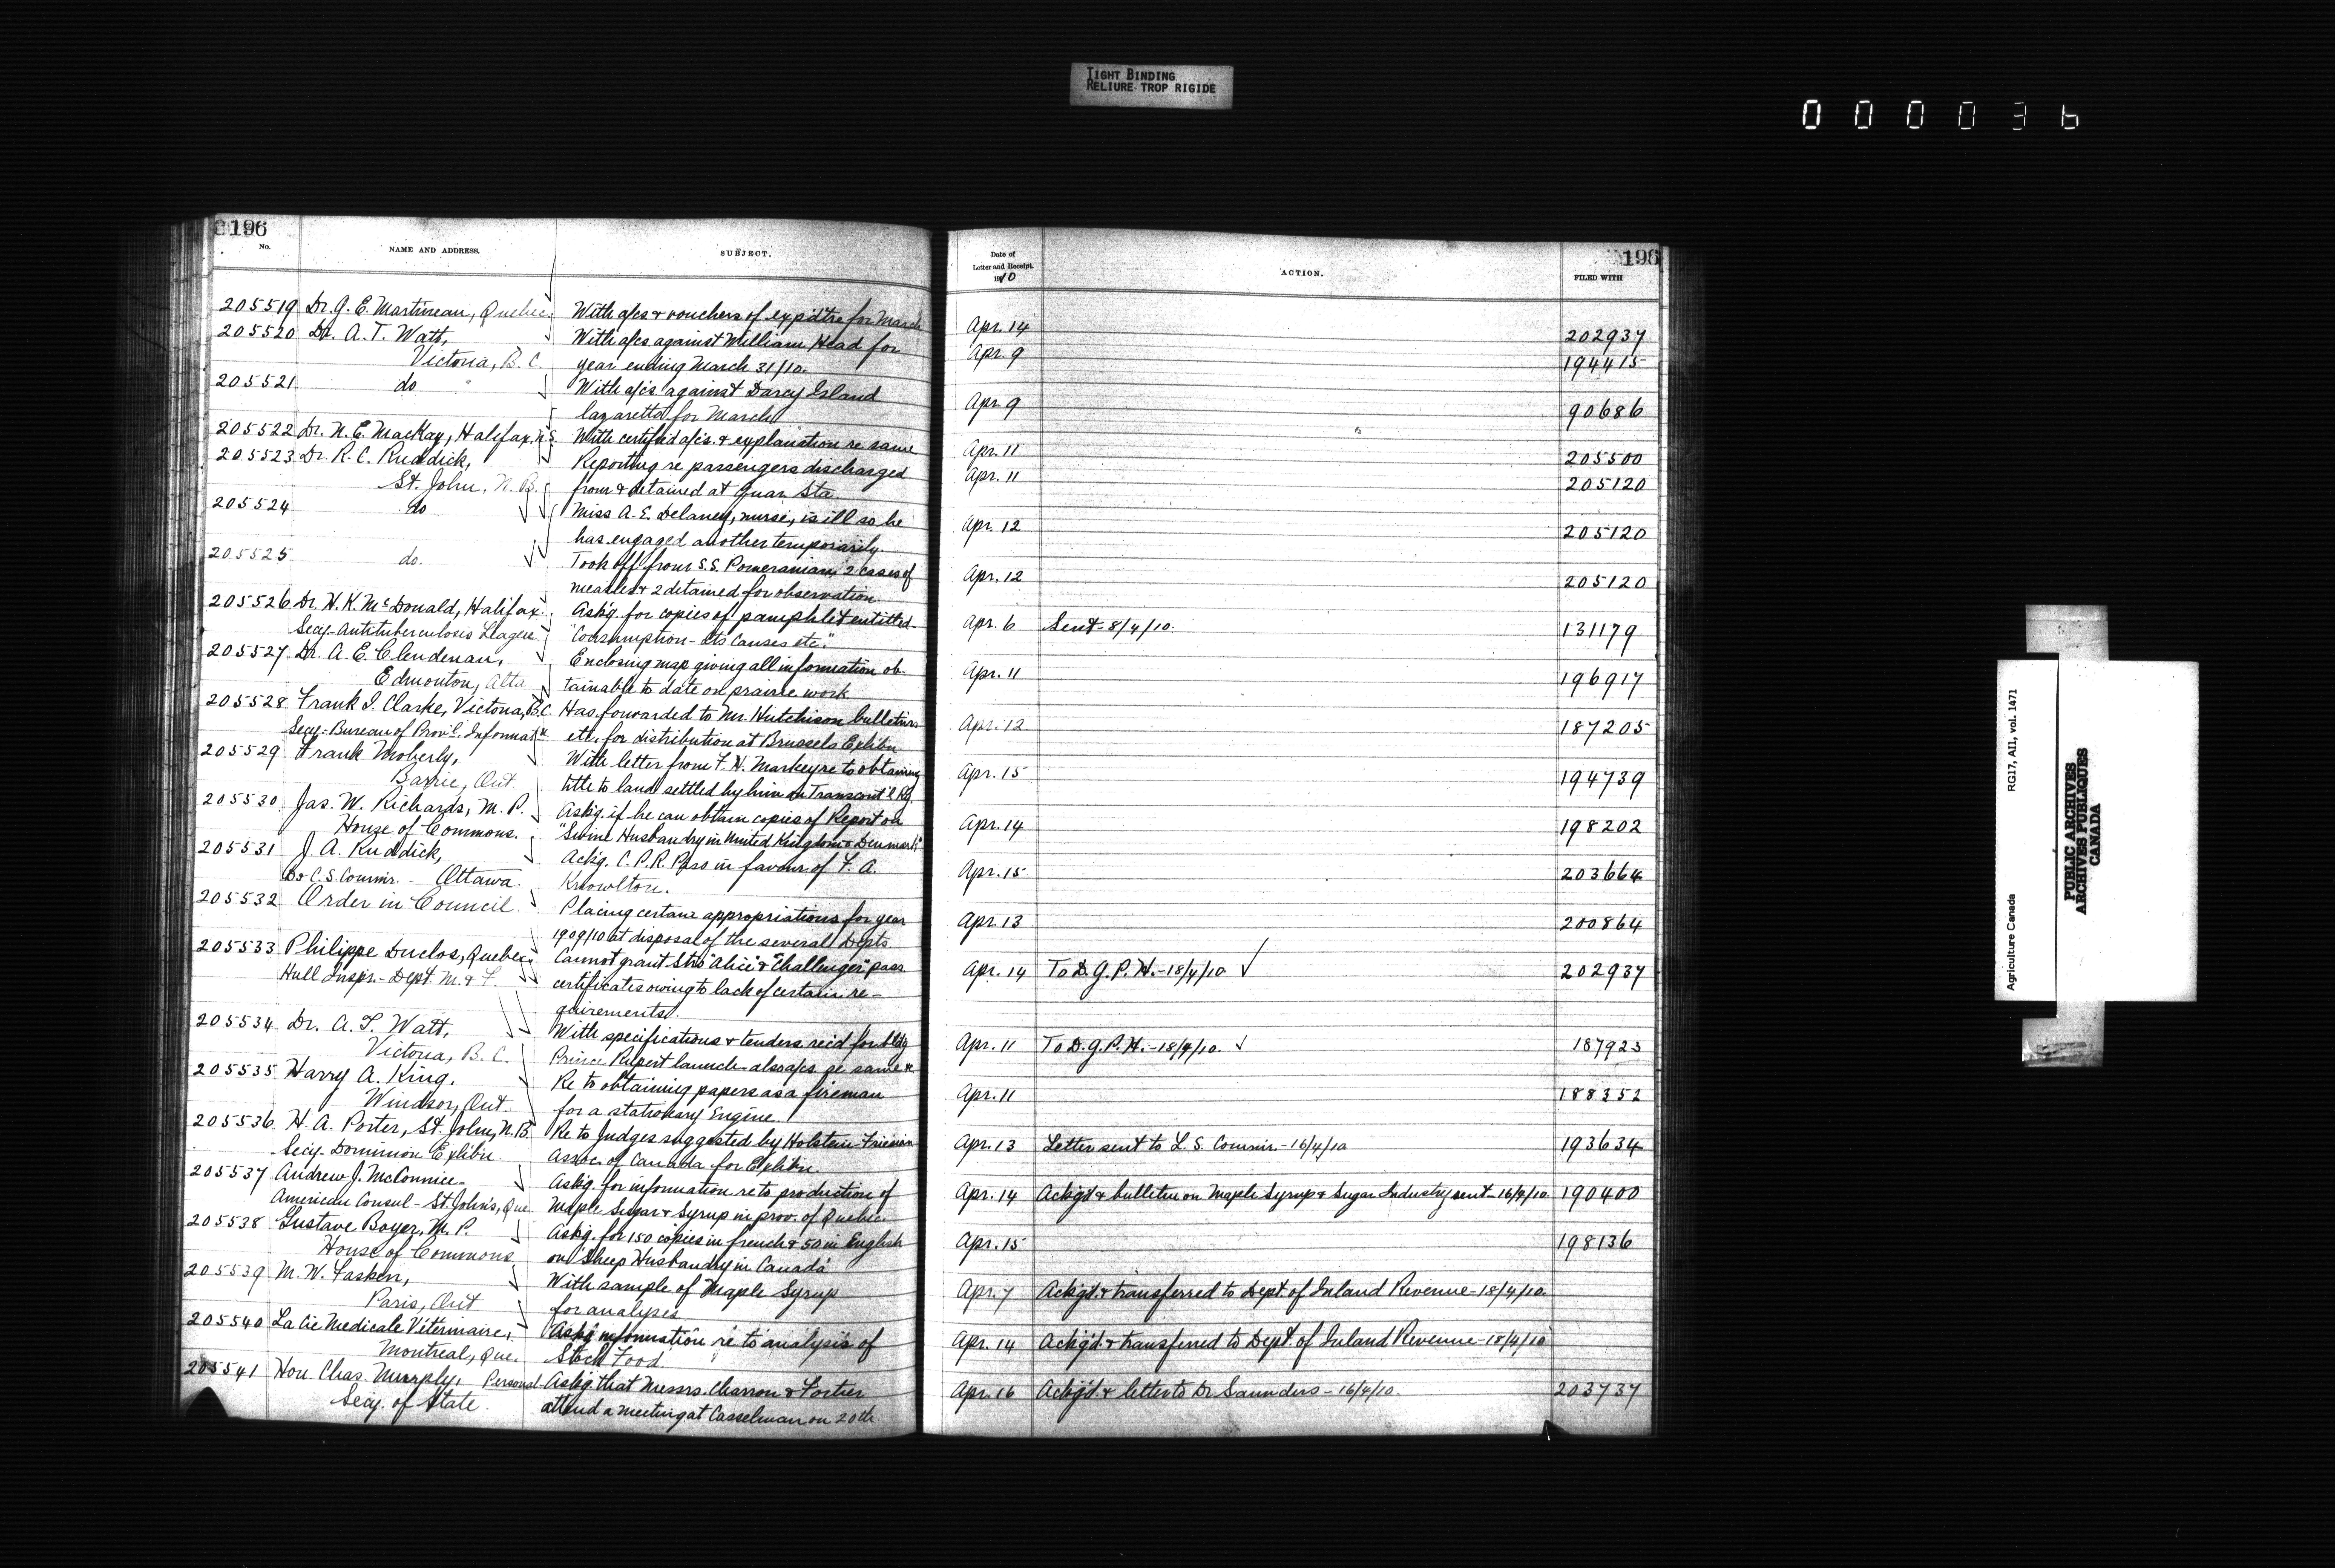 TIGHT BINDING
RELIURE TROP RIGIDE
000036
196
No.
NAME AND ADDRESS.
SUBJECT.
205519 Dr. G. E. Martineau, Quebec. With a/cs & vouchers of exp'd'tre for March
205520 Dr. A. T. Watt, With a/cs against William Head for
Victoria, B.C. year ending March 31/10.
205521 do With a/cs against Darcy Island
lazaretto for March
205522 Dr. N. E. MacKay, Halifax, N.S. With certified a/cs. & explanation re same
205523 Dr. R. C. Ruddick, Reporting re passengers discharged
St. John, N.B. from & detained at Quar. Sta.
205524 do Miss A. E. Delaney, nurse, is ill so he
has engaged another temporarily.
205525 do. Took off from S.S. Pomeranian, 2 cases of
measles & 2 detained for observation.
205526 Dr. H. K. McDonald, Halifax. Ask'g. for copies of pamphlet entitled
Secy. Antituberculosis League "Consumption - Its Causes etc."
205527 Dr. A. E. Clendenan, Enclosing map giving all information ob-
Edmonton, Alta tainable to date on prairie work
205528 Frank I. Clarke, Victoria, B.C. Has forwarded to Mr. Hutchison bulletins
Secy. Bureau of Prov'l. Informat'n etc. for distribution at Brussels Exhibn
205529 Frank Moberly, With letter from F. H. Markey re to obtaining
Barrie, Ont. title to land settled by him on Transcont'l Ry.
205530 Jas. W. Richards, M.P. Ask'g. if he can obtain copies of Report on
House of Commons. "Swine Husbandry in United Kingdom & Denmark"
205531 J. A. Ruddick, Ack'g. C.P.R. Pass in favour of F. A.
D & C. S. Commr. Ottawa. Knowlton.
205532 Order in Council. Placing certain appropriations for year
1909/10 at disposal of the several Depts
205533 Philippe Duclos, Quebec Cannot grant Strs "Alice" & "Challenger" pass
Hull Inspr. - Dept. M. & F. certificates owing to lack of certain re-
quirements.
205534 Dr. A. T. Watt, With specifications & tenders rec'd for bldg
Victoria, B.C. Prince Rupert launch - also a/cs. re same
205535 Harry A. King, Re to obtaining papers as a fireman
Windsor, Ont. for a stationary Engine.
205536 H. A. Porter, St. John, N.B. Re to Judges suggested by Holstein-Friesian
Secy. Dominion Exhibn Assoc. of Canada for Exhibn.
205537 Andrew J. McConnico - Ask'g. for information re to production of
American Consul - St. John's, Que. Maple Sugar & Syrup in prov. of Quebec
205538 Gustave Boyer, M.P. Ask'g. for 150 copies in french & 50 in English
House of Commons on "Sheep Husbandry in Canada"
205539 M. W. Fasken, With sample of Maple Syrup
Paris, Ont for analyses
205540 La Cie Medicale Vétérinaire, Ask'g information re to analysis of
Montreal, Que. Stock Food.
205541 Hon. Chas. Murphy, Personal Ask'g that Messrs. Charron & Fortier
Secy. of State. attend a meeting at Casselman on 20th
196
Date of
Letter and Receipt.
1910
ACTION.
FILED WITH
Apr. 14 202937
Apr. 9 194415
Apr. 9 90686
Apr. 11 205500
Apr. 11 205120
Apr. 12 205120
Apr. 12 205120
Apr. 6 Sent - 8/4/10. 131179
Apr. 11 196917
Apr. 12 187205
Apr. 15 194739
Apr. 14 198202
Apr. 15 203664
Apr. 13 200864
Apr. 14 To D.G.P.H. - 18/4/10 202937
Apr. 11 To D.G.P.H. - 18/4/10. 187923
Apr. 11 188352
Apr. 13 Letter sent to L. S. Commr. - 16/4/10 193634
Apr. 14 Ack'g'd & bulletin on Maple Syrup & Sugar Industry sent - 16/4/10. 190400
Apr. 15 198136
Apr. 7 Ack'g'd. & transferred to Dept. of Inland Revenue - 18/4/10.
Apr. 14 Ack'g'd. & transferred to Dept. of Inland Revenue - 18/4/10
Apr. 16 Ack'g'd. & letter to Dr Saunders - 16/4/10. 203737
Agriculture Canada RG17, AII, vol. 1471
PUBLIC ARCHIVES
ARCHIVES PUBLIQUES
CANADA